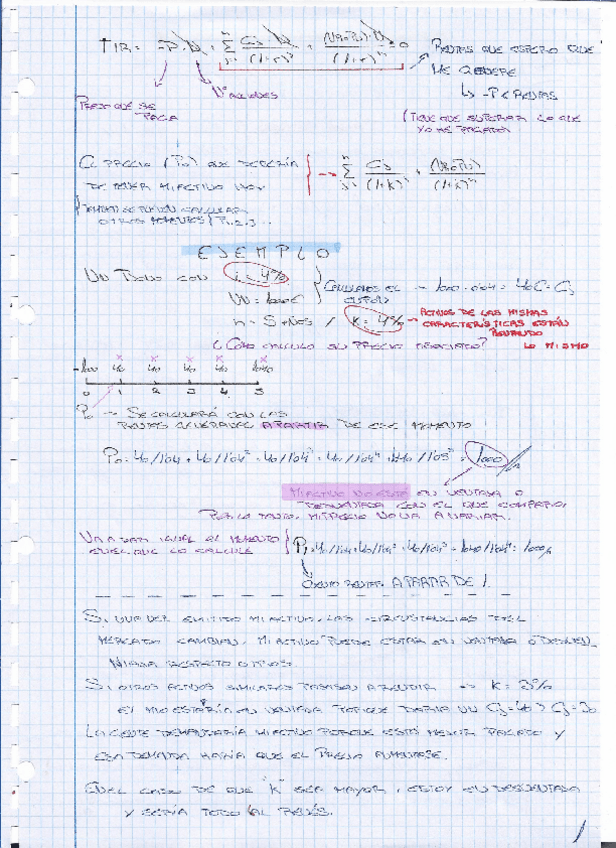 TIR = -P · N + Σ Cj · N / (1+r)^j + (VN+P.) · N / (1+r)^n = 0
RENTAS QUE ESPERO QUE
ME GENERE
↳ -P < RENTAS
PRECIO QUE SE
PAGA
Nº ACCIONES
(TIENE QUE SUPERAR LO QUE
YO HE PAGADO)
EL PRECIO (P₀) QUE DEBERÍA
DE TENER MI ACTIVO HOY
→ Σ Cj / (1+k)^j +
TAMBIÉN SE PUEDEN CALCULAR
OTROS MOMENTOS P1, 2, 3...
EJEMPLO
UN BONO CON i = 4%
VN = 1000€
CALCULAMOS EL CUPÓN → 1000 · 0'04 = 40€ = Cj
n = 5 AÑOS / K = 4% → ACTIVOS DE LAS MISMAS
CARACTERÍSTICAS ESTÁN
LO MISMO
¿CÓMO CALCULO SU PRECIO?
-1000 40 40 40 40 1040
0 1 2 3 4 5
P₀ → SE CALCULARÁ CON LAS
RENTAS GENERADAS A PARTIR DE ESE MOMENTO
P₀ = 40/1'04 + 40/1'04² + 40/1'04³ + 40/1'04⁴ + 1040/1'04⁵ = 1000
MI ACTIVO NO ESTÁ EN VENTAJA O
DESVENTAJA CON EL QUE COMPARO,
POR LO TANTO, MI PRECIO NO VA A VARIAR.
VA A DAR IGUAL EL MOMENTO
EN EL QUE LO CALCULE
P₁ = 40/1'04 + 40/1'04² + 40/1'04³ + 1040/1'04⁴ = 1000
CUENTO RENTAS A PARTIR DE 1.
SI, UNA VEZ EMITIDO MI ACTIVO, LAS CIRCUNSTANCIAS DEL
MERCADO CAMBIAN, MI ACTIVO PUEDE ESTAR EN VENTAJA O DESVEN-
TAJA RESPECTO OTROS.
SI OTROS ACTIVOS SIMILARES PASASEN A RENDIR → K = 3%
EL MIO ESTARÍA EN VENTAJA PORQUE DARIA UN Cj = 40 > Cj = 30
LA GENTE DEMANDARÍA MI ACTIVO PORQUE ESTÁ MEJOR PAGADO Y
ESA DEMANDA HARÍA QUE EL PRECIO AUMENTASE.
EN EL CASO DE QUE "K" SEA MAYOR, ESTOY EN DESVENTAJA
Y SERÍA TODO AL REVÉS.
1